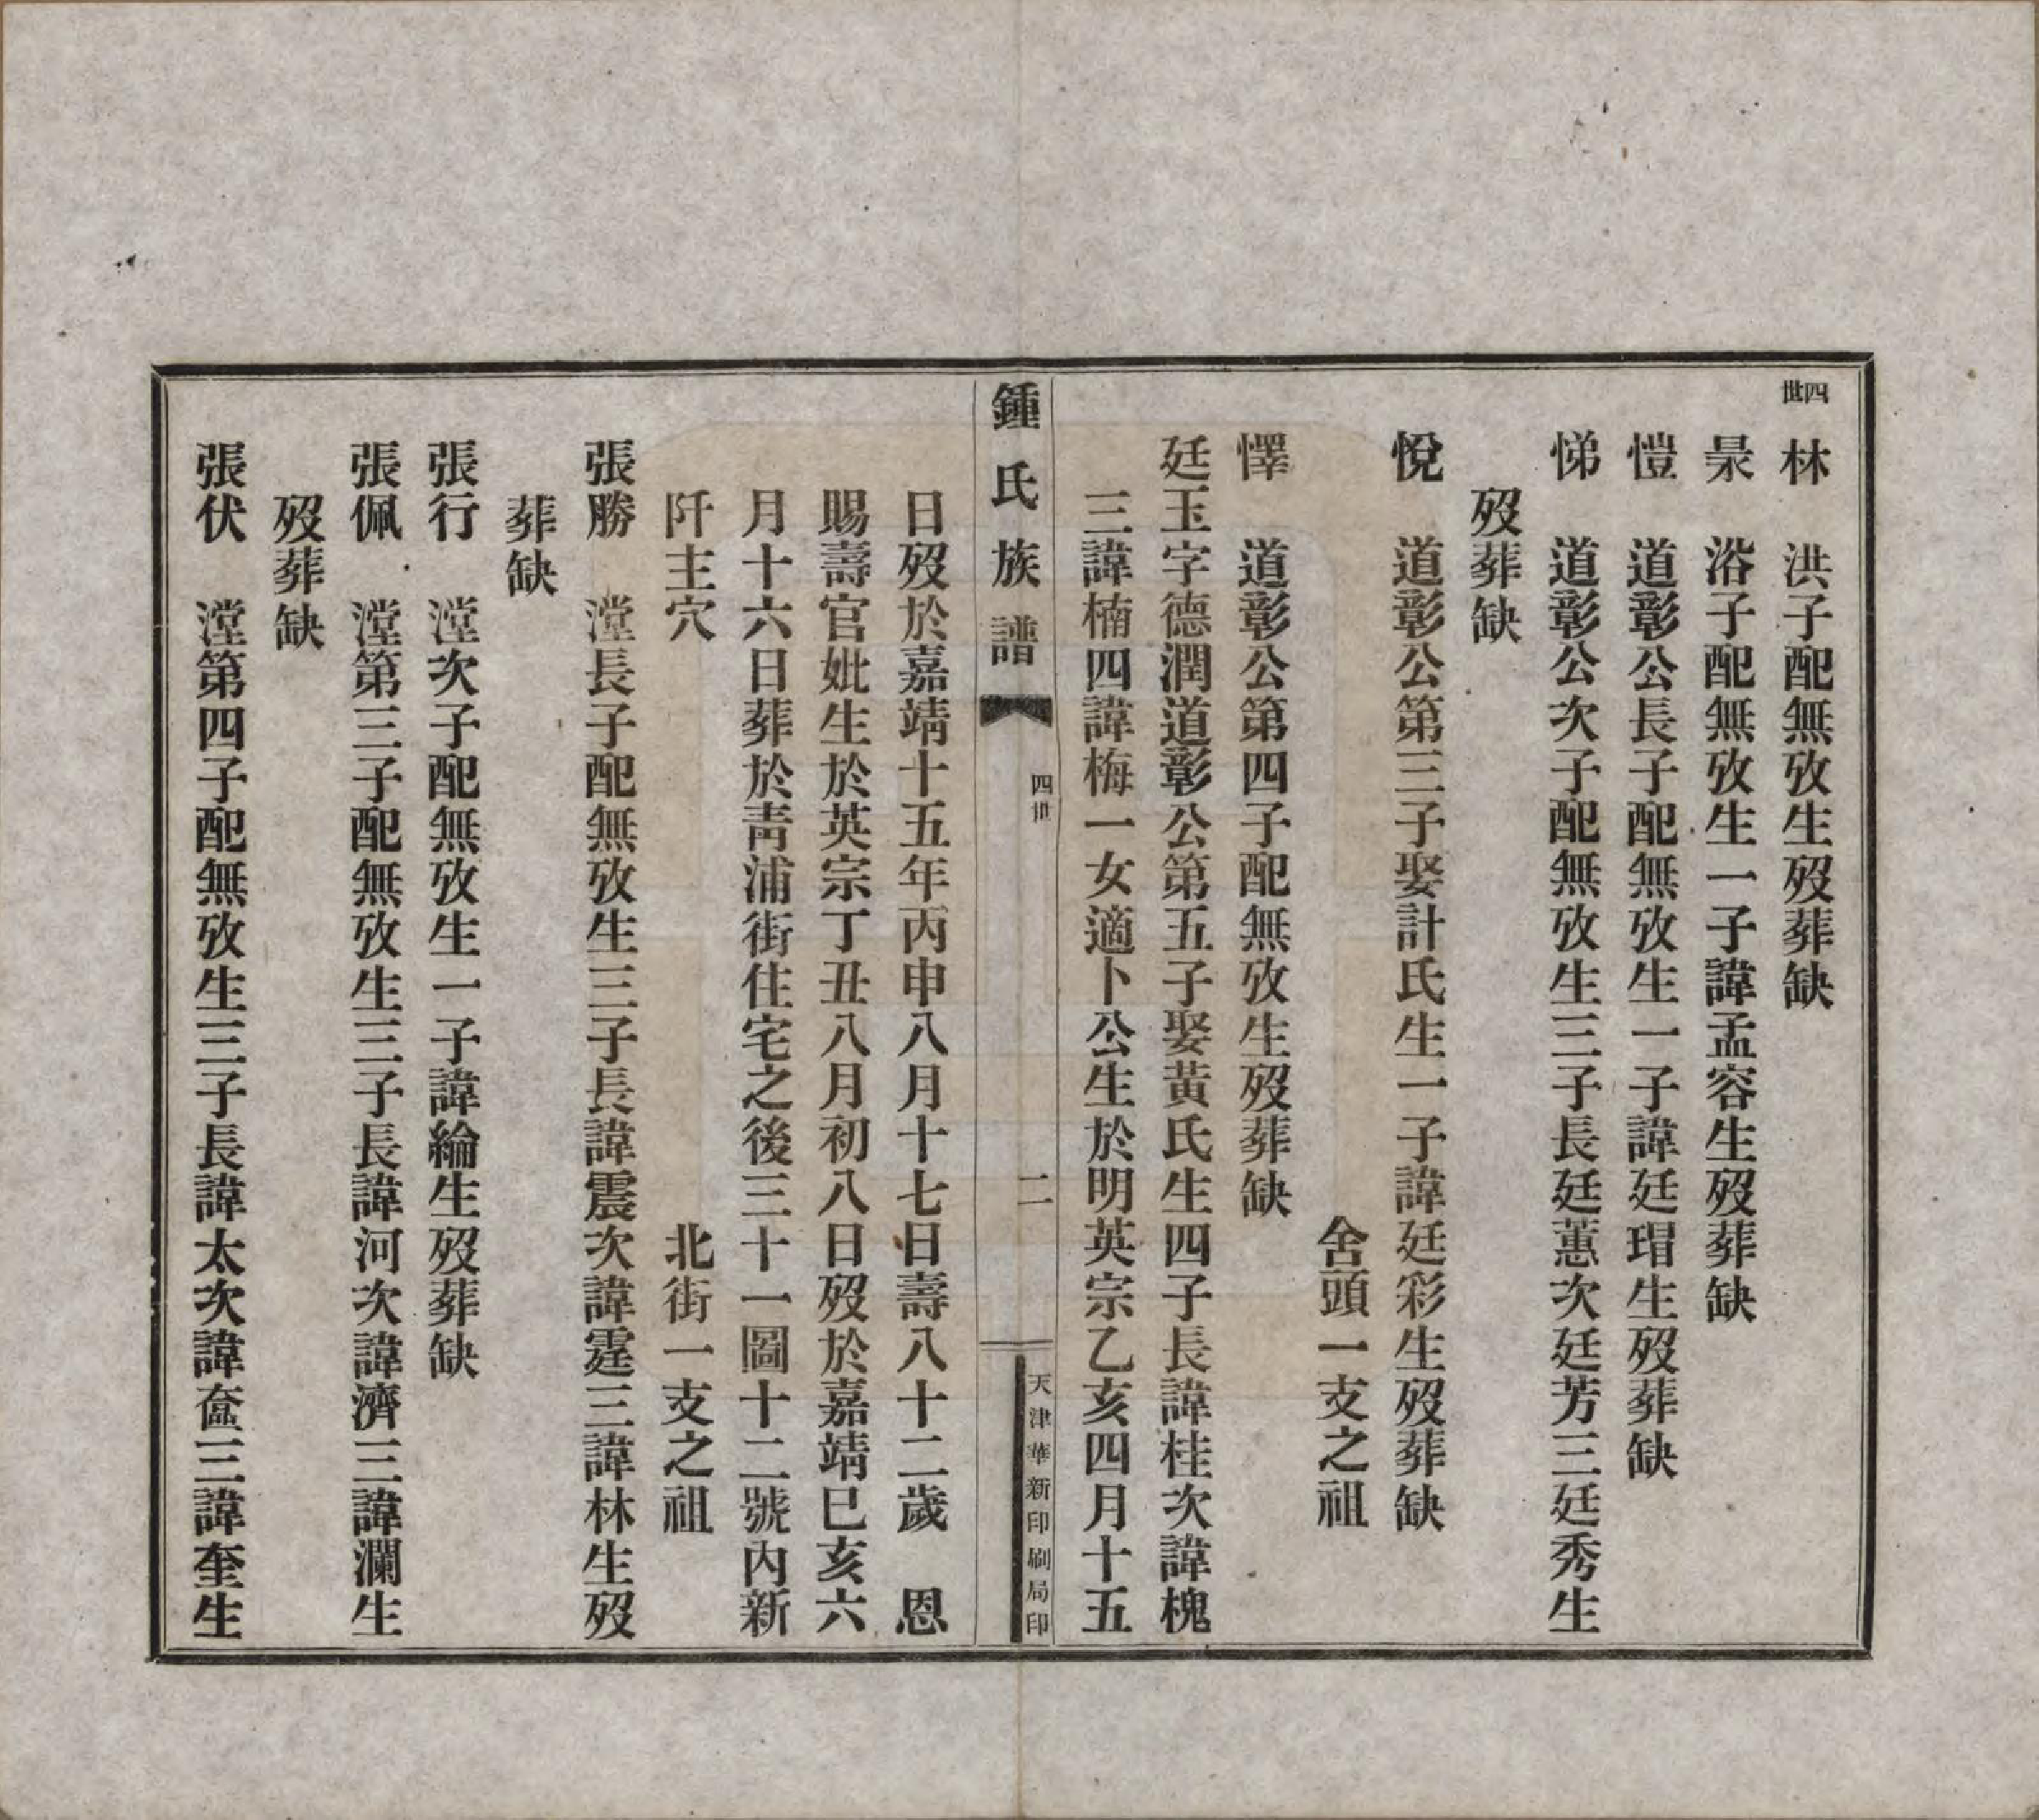 四世
林　洪子配無攷生歿葬缺
杲　浴子配無攷生一子諱孟容生歿葬缺
愷　道彰公長子配無攷生一子諱廷瑁生歿葬缺
悌　道彰公次子配無攷生三子長廷蕙次廷芳三廷秀生
歿葬缺
悅　道彰公第三子娶計氏生一子諱廷彩生歿葬缺
舍頭一支之祖
懌　道彰公第四子配無攷生歿葬缺
廷玉字德潤道彰公第五子娶黃氏生四子長諱桂次諱槐
三諱楠四諱梅一女適卜公生於明英宗乙亥四月十五
鍾氏族譜
四世
二
天津華新印刷局印
日歿於嘉靖十五年丙申八月十七日壽八十二歲　恩
賜壽官妣生於英宗丁丑八月初八日歿於嘉靖已亥六
月十六日葬於靑浦街住宅之後三十一圖十二號內新
阡主穴　北街一支之祖
張勝　漟長子配無攷生三子長諱震次諱霆三諱林生歿
葬缺
張行　漟次子配無攷生一子諱綸生歿葬缺
張佩　漟第三子配無攷生三子長諱河次諱濟三諱瀾生
歿葬缺
張伏　漟第四子配無攷生三子長諱太次諱三諱奎生